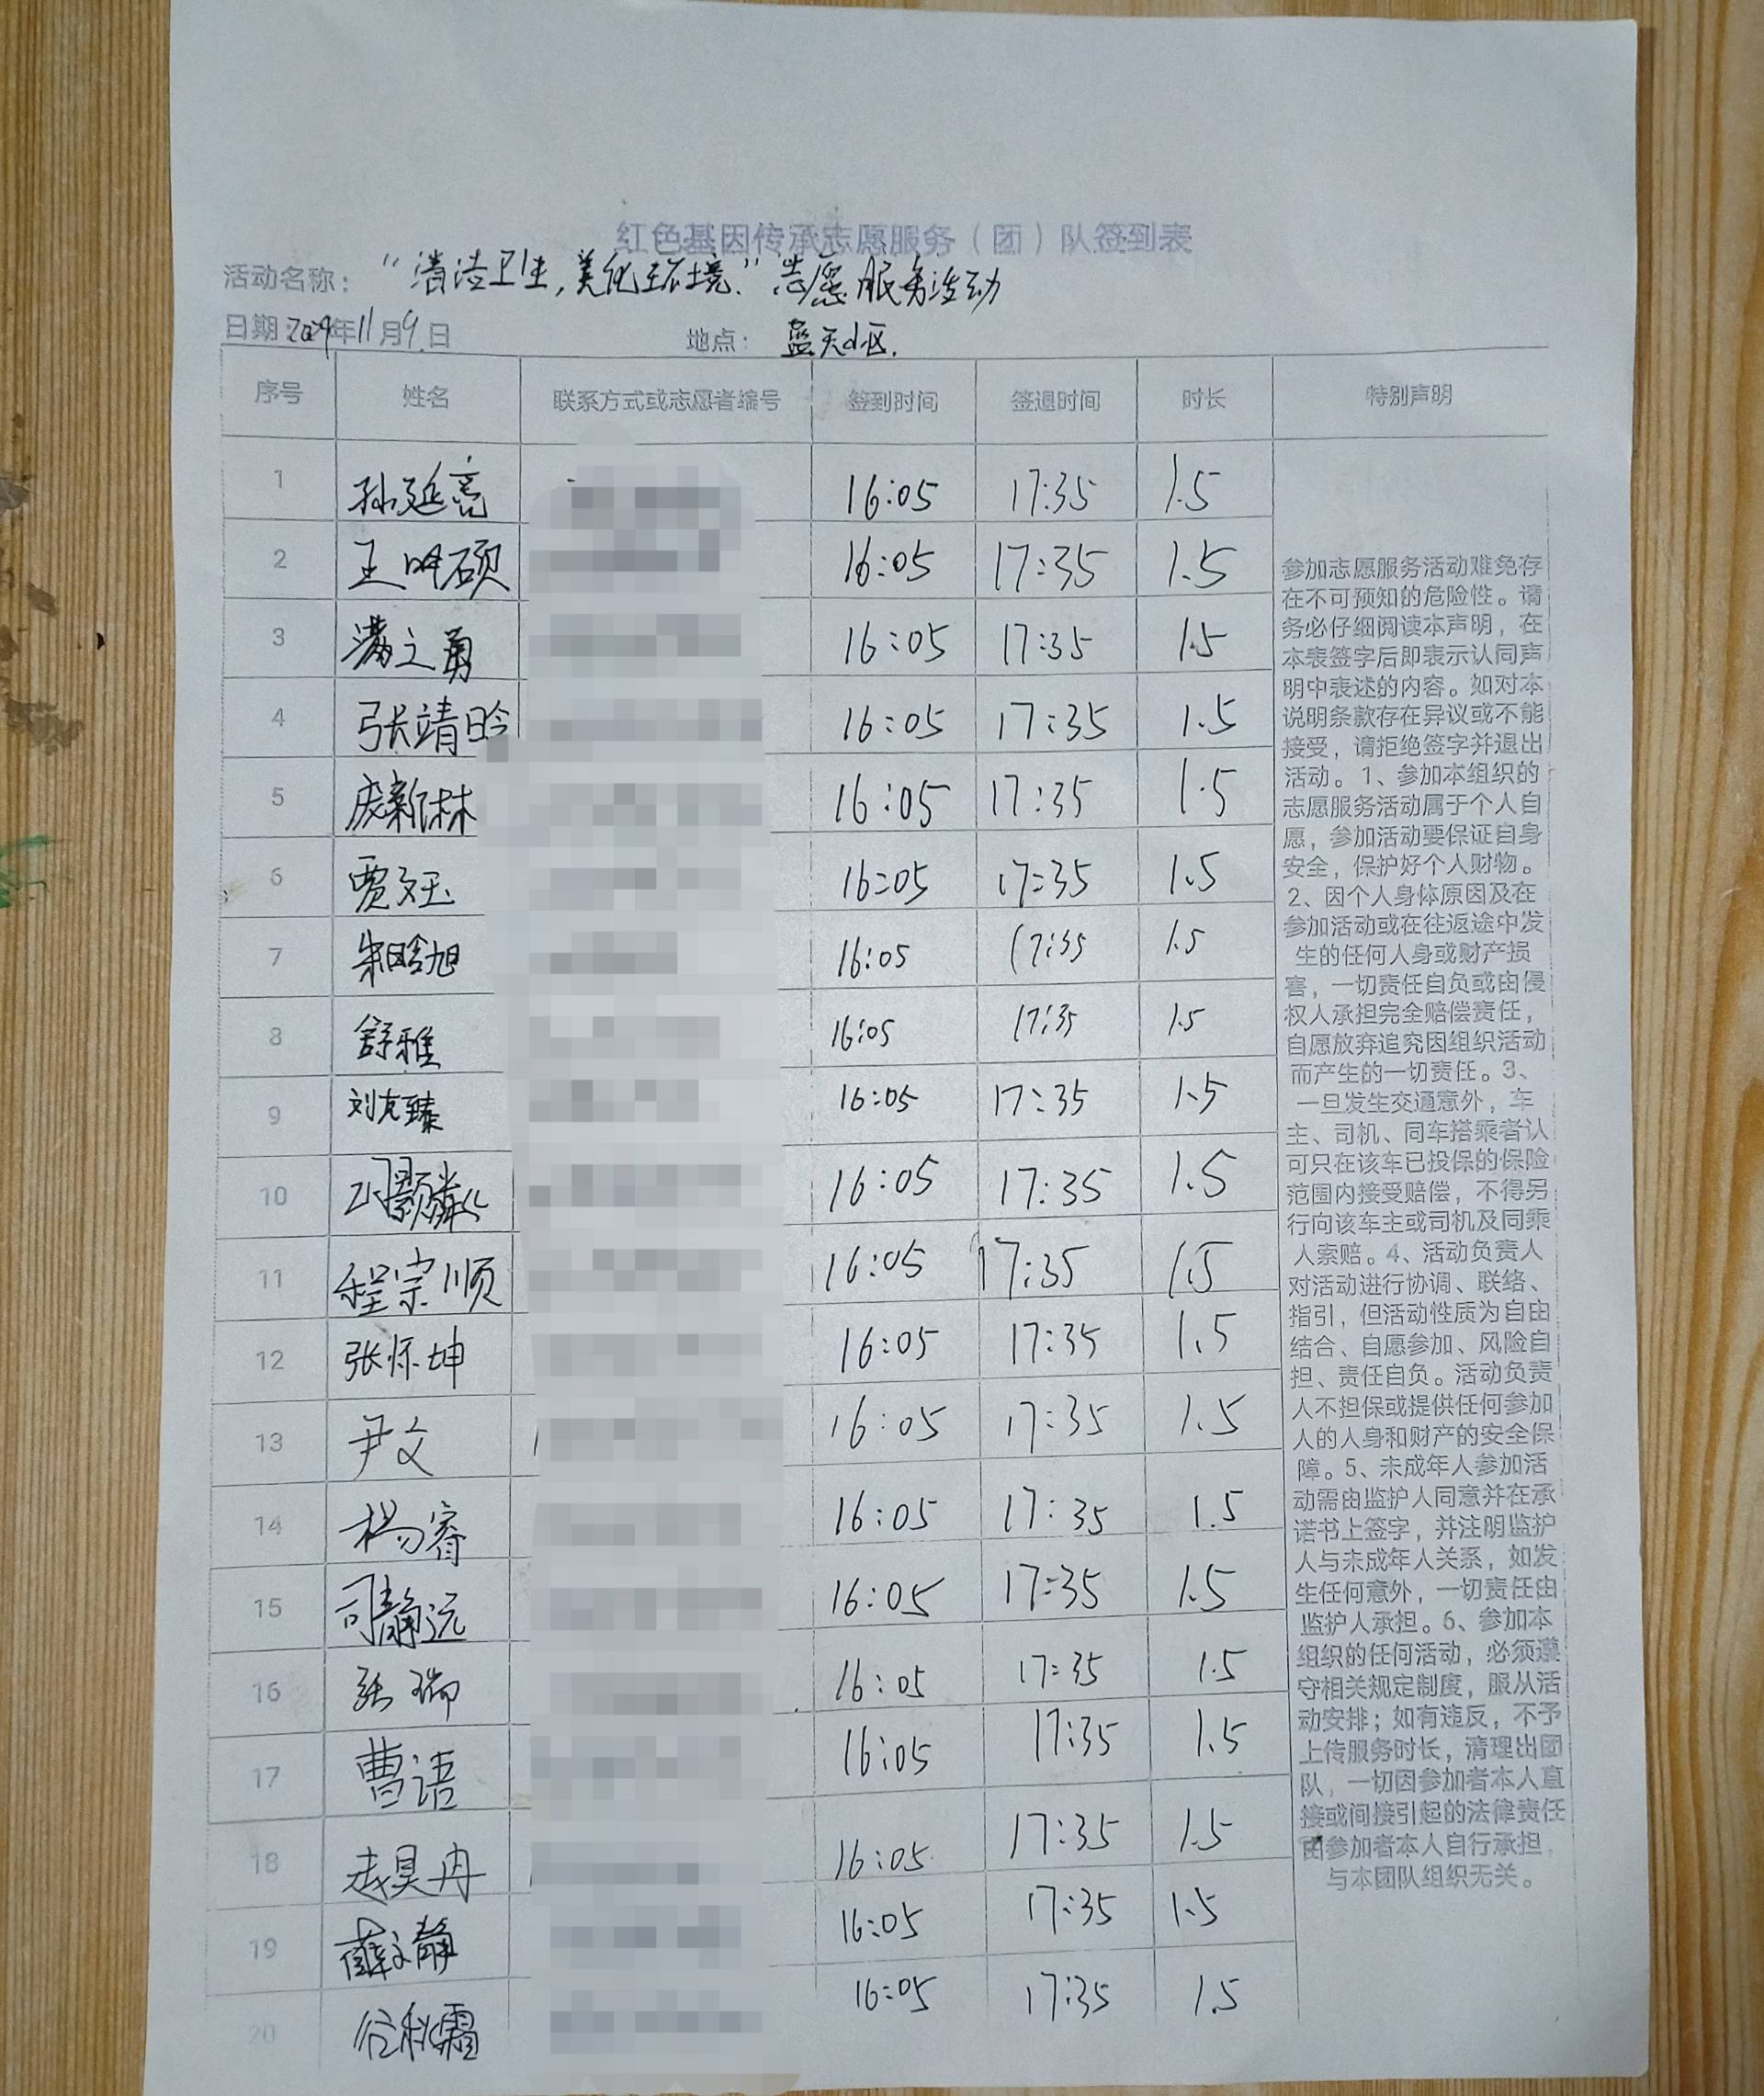 红色基因传承志愿服务（团）队签到表
活动名称：“清洁卫生，美化环境.”志愿服务活动
日期：年11月9日 地点：蓝天小区.
序号 姓名 联系方式或志愿者编号 签到时间 签退时间 时长 特别声明
1 孙延亮 16:05 17:35 1.5
2 王明硕 16:05 17:35 1.5
3 满之勇 16:05 17:35 1.5
4 张靖晗 16:05 17:35 1.5
5 庞新林 16:05 17:35 1.5
6 贾文玉 16:05 17:35 1.5
7 朱晗旭 16:05 17:35 1.5
8 舒雅 16:05 17:35 1.5
9 刘克臻 16:05 17:35 1.5
10 16:05 17:35 1.5
11 程宗顺 16:05 17:35 1.5
12 张怀坤 16:05 17:35 1.5
13 尹文 16:05 17:35 1.5
14 杨睿 16:05 17:35 1.5
15 司静远 16:05 17:35 1.5
16 张瑞 16:05 17:35 1.5
17 曹语 16:05 17:35 1.5
18 赵昊冉 16:05 17:35 1.5
19 薛文静 16:05 17:35 1.5
20 谷秋霜 16:05 17:35 1.5
参加志愿服务活动难免存
在不可预知的危险性。请
务必仔细阅读本声明，在
本表签字后即表示认同声
明中表述的内容。如对本
说明条款存在异议或不能
接受，请拒绝签字并退出
活动。1、参加本组织的
志愿服务活动属于个人自
愿，参加活动要保证自身
安全，保护好个人财物。
2、因个人身体原因及在
参加活动或在往返途中发
生的任何人身或财产损
害，一切责任自负或由侵
权人承担完全赔偿责任，
自愿放弃追究因组织活动
而产生的一切责任。3、
一旦发生交通意外，车
主、司机、同车搭乘者认
可只在该车已投保的保险
范围内接受赔偿，不得另
行向该车主或司机及同乘
人索赔。4、活动负责人
对活动进行协调、联络、
指引，但活动性质为自由
结合、自愿参加、风险自
担、责任自负。活动负责
人不担保或提供任何参加
人的人身和财产的安全保
障。5、未成年人参加活
动需由监护人同意并在承
诺书上签字，并注明监护
人与未成年人关系，如发
生任何意外，一切责任由
监护人承担。6、参加本
组织的任何活动，必须遵
守相关规定制度，服从活
动安排；如有违反，不予
上传服务时长，清理出团
队，一切因参加者本人直
接或间接引起的法律责任
由参加者本人自行承担，
与本团队组织无关。